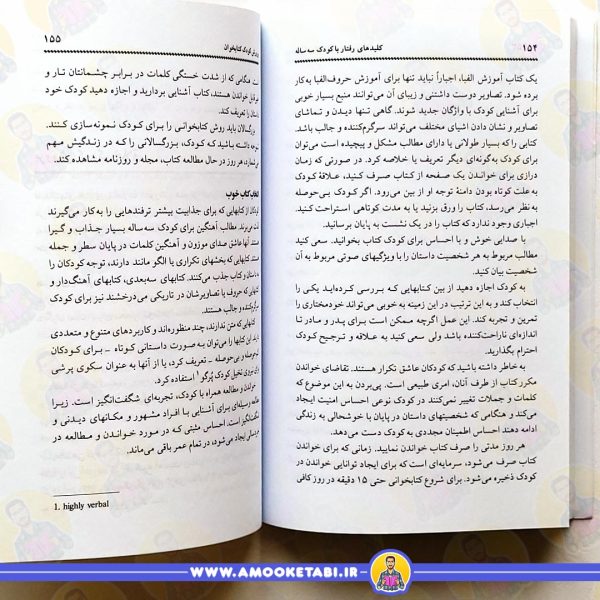 ۱۵۴
کلیدهای رفتار با کودک سه ساله
یک کتاب آموزش الفبا، اجباراً نباید تنها برای آموزش حروف‌الفبا به‌کار
برده شود. تصاویر دوست داشتنی و زیبای آن می‌توانند منبع بسیار خوبی
برای آشنایی کودک با واژگان جدید شوند. گاهی تنها دیدن و تماشای
تصاویر و نشان دادن اشیای مختلف می‌تواند سرگرم‌کننده و جالب باشد.
کتابی را که بسیار طولانی یا دارای مطالب مشکل و پیچیده است می‌توانید
برای کودک به‌گونه‌ای دیگر تعریف یا خلاصه کرد. در صورتی که زمان
درازی برای خواندن یک صفحه از کتاب صرف کنید، علاقهٔ کودک
به علت کوتاه بودن دامنهٔ توجه او از بین می‌رود. اگر کودک بی‌حوصله
به نظر می‌رسد، کتاب را ورق بزنید یا به مدت کوتاهی استراحت کنید.
اجباری وجود ندارد که کتاب را در یک نشست به پایان برسانید.
با صدایی خوش و با احساس برای کودک کتاب بخوانید. سعی کنید
مطالب مربوط به هر شخصیت داستان را با ویژگیهای صوتی مربوط به آن
شخصیت بیان کنید.
به کودک اجازه دهید از بین کتابهایی که بررسی کرده‌اید یکی را
انتخاب کند و به این ترتیب در این زمینه به خوبی می‌تواند خودمختاری را
تمرین و تجربه کند. این عمل اگرچه ممکن است برای پدر و مادر تا
اندازه‌ای ناراحت‌کننده باشد ولی سعی کنید به علاقه و ترجیح کودک
احترام بگذارید.
به خاطر داشته باشید که کودکان عاشق تکرار هستند. تقاضای خواندن
مکرر کتاب از طرف آنان، امری طبیعی است. پی‌بردن به این موضوع که
کلمات و جملات تغییر نمی‌کنند در کودک نوعی احساس امنیت ایجاد
می‌کند و هنگامی که شخصیتهای داستان در پایان با خوشحالی به زندگی
ادامه دهند احساس اطمینان مجددی به کودک دست می‌دهد.
هر روز مدتی را صرف کتاب خواندن نمایید. زمانی که برای خواندن
کتاب صرف می‌شود، سرمایه‌ای است که برای ایجاد توانایی خواندن در
کودک ذخیره می‌شود. برای شروع کتابخوانی حتی ۱۵ دقیقه در روز کافی
۱۵۵
کودک کتابخوان
است. هنگامی که از شدت خستگی کلمات در برابر چشمانتان تار و
خواندن هستند، کتاب آشنایی بردارید و اجازه دهید کودک خود
داستان را تعریف کند.
بزرگسالان باید روش کتابخوانی را برای کودک نمونه‌سازی کنند.
توجه داشته باشید که کودک، بزرگسالانی را که در زندگیش مهم
هر روز در حال مطالعه کتاب، مجله و روزنامه مشاهده کند.
انتخاب کتاب خوب
کودکان از کتابهایی که برای جذابیت بیشتر ترفندهایی را به‌کار می‌گیرند
لذت می‌برند. مطالب آهنگین برای کودک سه‌ساله بسیار جذاب و گیرا
است. آنها عاشق صدای موزون و آهنگین کلمات در پایان سطر و جمله
هستند. کتابهایی که بخشهای تکراری یا الگو مانند دارند، توجه کودکان را
به داستان و کتاب جذب می‌کنند. کتابهای سه‌بعدی، کتابهای آهنگ‌دار و
کتابهایی که حروف یا تصاویرشان در تاریکی می‌درخشند نیز برای کودک
سرگرم‌کننده و جالب هستند.
کتابهایی که متن ندارند، چند منظوره‌اند و کاربردهای متنوع و متعددی
دارند. این کتابها را می‌توان به صورت داستانی کوتاه – برای کودکان
کم‌توجه و بی‌حوصله – تعریف کرد، یا از آنها به عنوان سکوی پرشی
برای نیروی تخیل کودک پُرگو۱ استفاده کرد.
خواندن و مطالعه همراه با کودک، تجربه‌ای شگفت‌انگیز است. زیرا
مطالعه وسیله‌ای برای آشنایی با افراد مشهور و مکانهای دیدنی و
شگفت‌انگیز است. احساس مثبتی که در مورد خواندن و مطالعه در
خردسالی ایجاد می‌شود، در تمام عمر باقی می‌ماند.
1. highly verbal
WWW.AMOOKETABI.IR